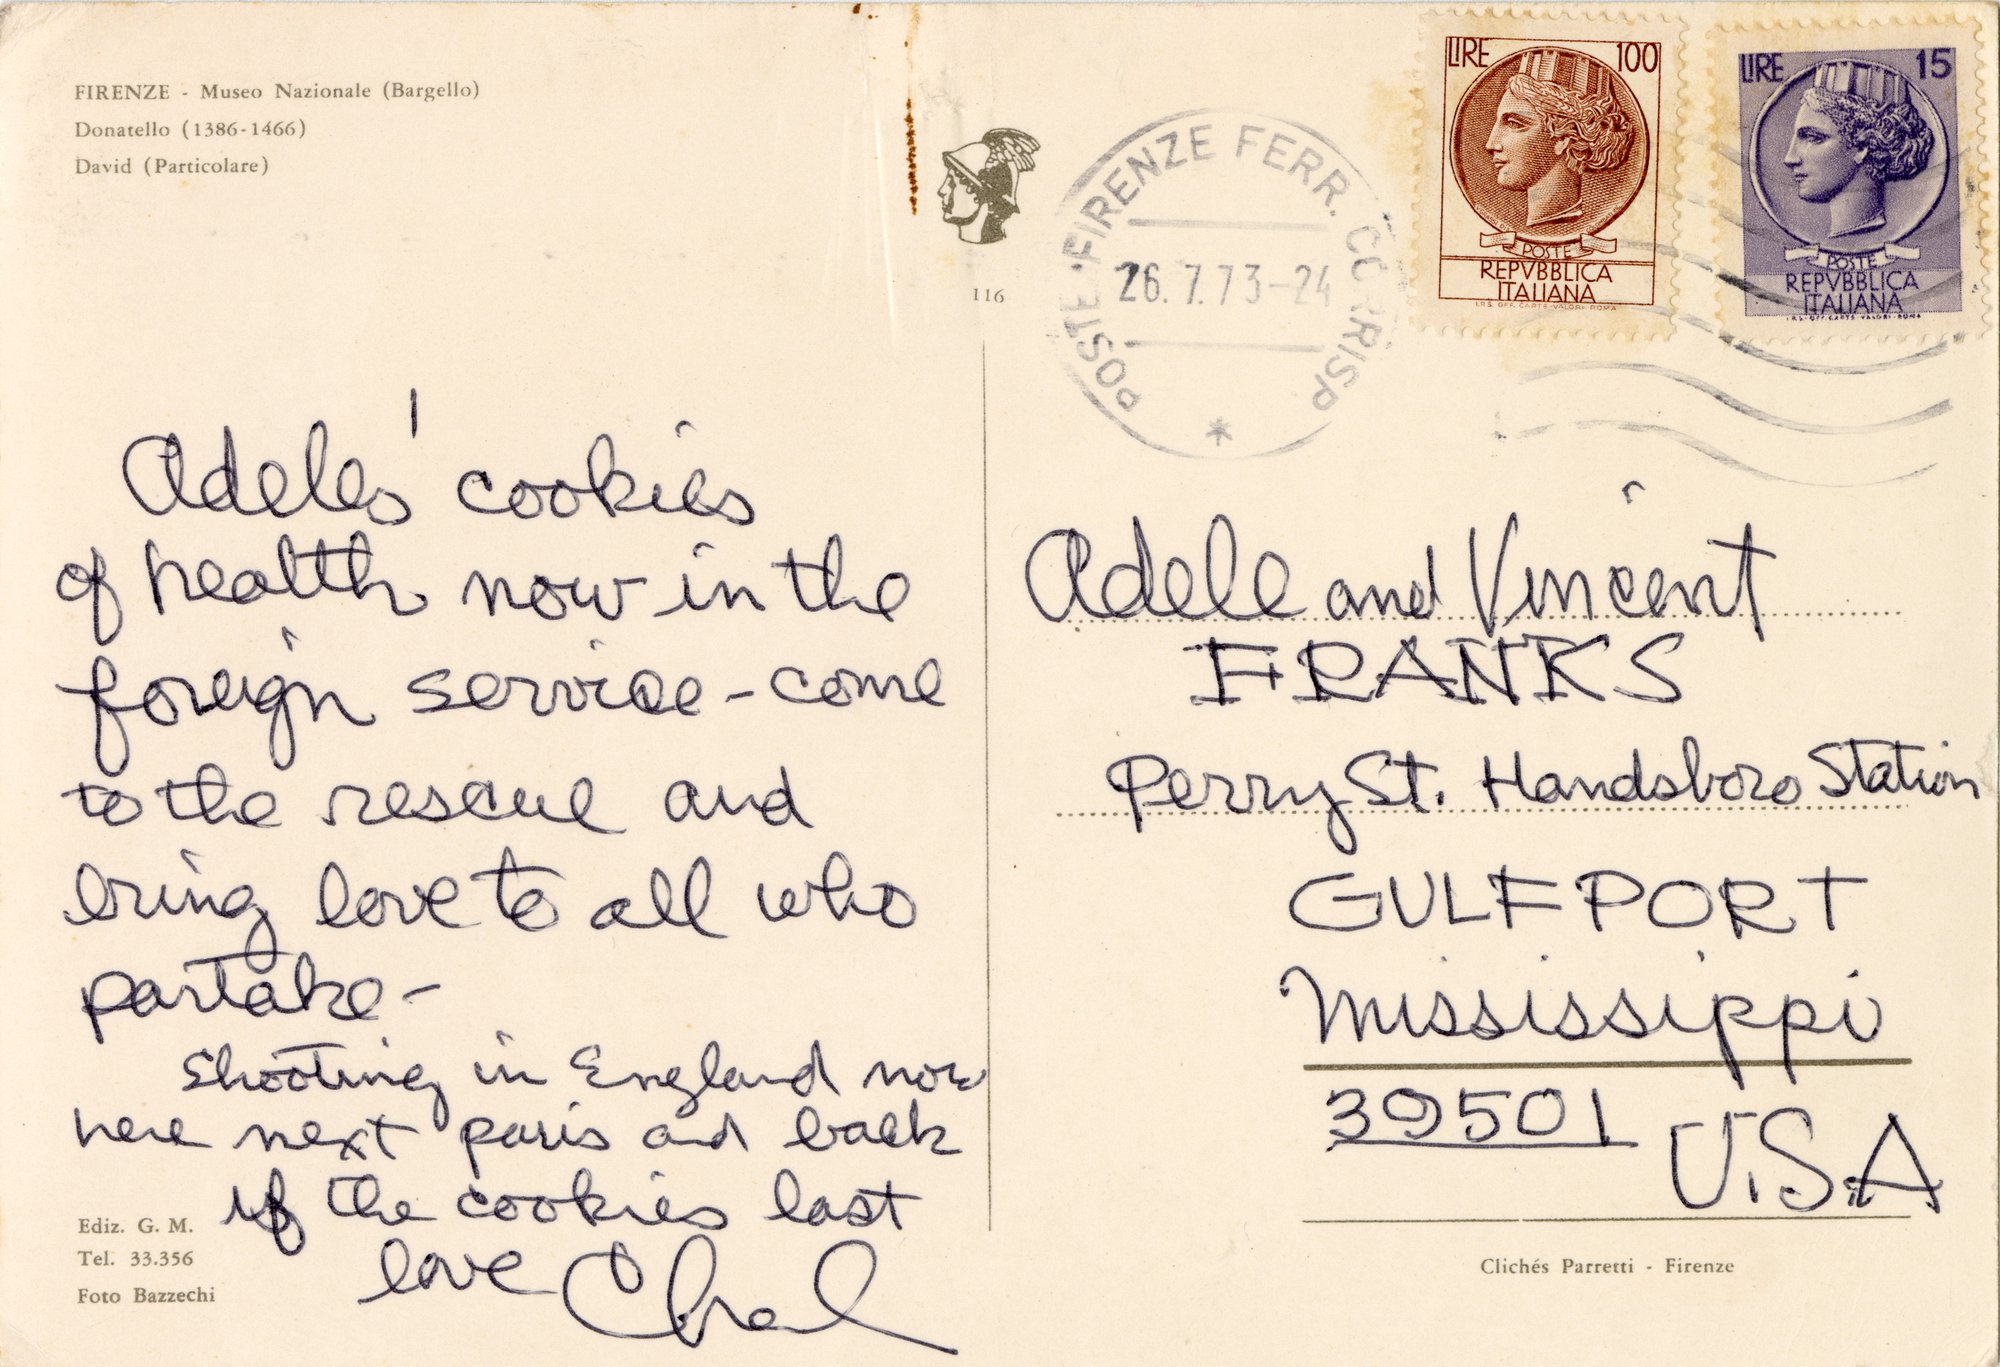 FIRENZE - Museo Nazionale (Bargello)
Donatello (1386-1466)
David (Particolare)
116
POSTE · FIRENZE FERR. CORRISP
26.7.73-24
LIRE 100
POSTE
REPVBBLICA
ITALIANA
I.P.S. OFF. CARTE-VALORI-ROMA
LIRE 15
POSTE
REPVBBLICA
ITALIANA
I.P.S. OFF. CARTE-VALORI-ROMA
Adeles' cookies
of health now in the
foreign service - come
to the rescue and
bring love to all who
partake -
Shooting in England now
here next paris and back
if the cookies last
love
Adele and Vincent
FRANKS
Perry St. Handsboro Station
GULFPORT
Mississippi
39501
U.S.A
Ediz. G. M.
Tel. 33.356
Foto Bazzechi
Clichés Parretti - Firenze